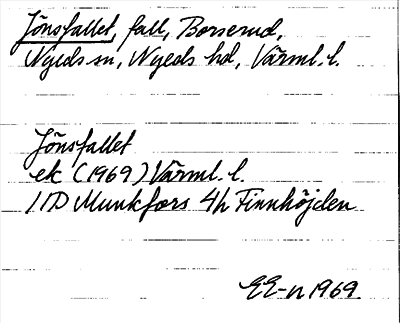 Jönsfallet, fall, Borserud,
Nyeds sn, Nyeds hd, Värml. l.
Jönsfallet
ek (1969) Värml. l.
11D Munkfors 4h Finnhöjden
EE-n 1969